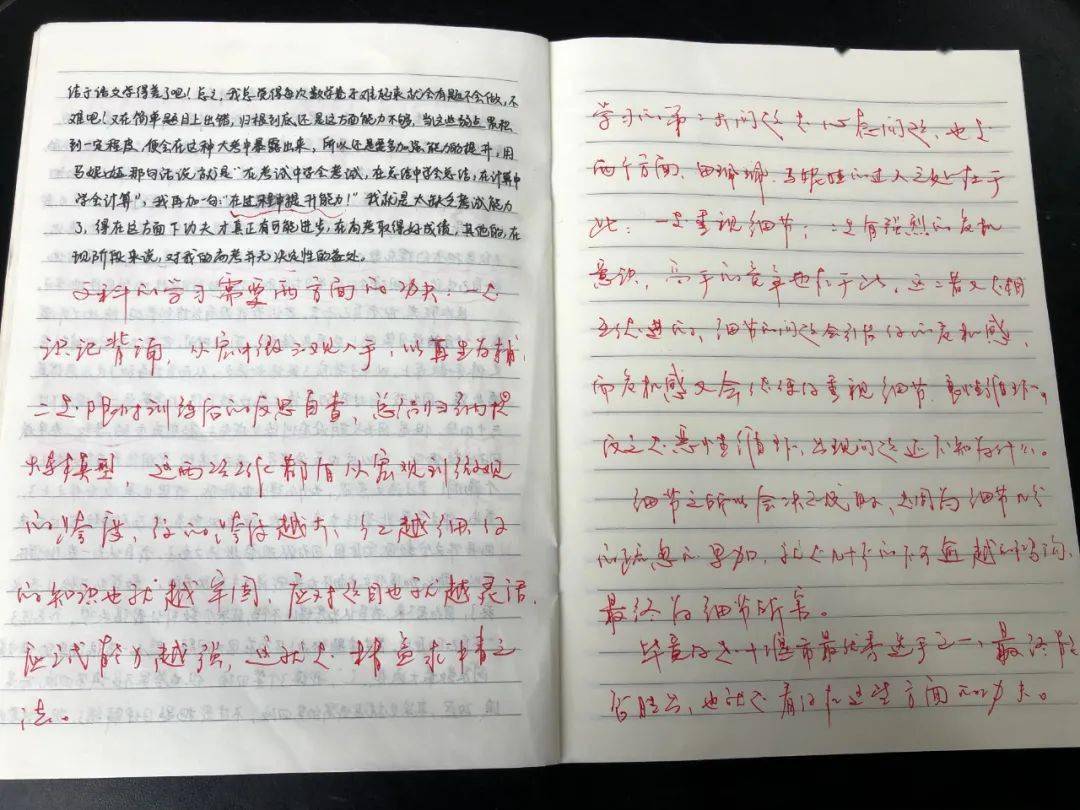 结于语文学得差了吧！总之，我总觉得每次数学卷子难起来就会有题不会做，不
难吧！又在简单题目上出错，归根到底还是这方面能力不够，当这些弱点累积
到一定程度，便会在这种大考中暴露出来，所以还是要多加强能力的提升，用
马妮娅那句话说就是“在考试中学会考试，在总结中学会总结，在计算中
学会计算”，我再加一句：“在过程中提升能力！”我就是太缺乏考试能力
了，得在这方面下功夫才真正有可能进步，在高考取得好成绩，其他的，在
现阶段来说，对我的高考并无决定性的益处。
文科的学习需要两方面的功夫，一是
识记背诵，从宏中微三观入手，以再生为辅，
二是限时训练后的反思自查，总结归纳提
炼模型，这两路都有从宏观到微观
的跨度，你的跨度越大，分工越细，你
的知识也就越牢固，应对题目也就越灵活，
应试能力越强，这就是精益求精之
法。
学习的第二大问题是心态问题，也是
两个方面，田珊珊、马妮娅的过人之处在于
此：一是重视细节；二是有强烈的危机
意识，高手的竞争也在于此，这二者又是相
互促进的，细节的问题会引发你的危机感，
而危机感又会促使你重视细节，良性循环。
反之是恶性循环，出现问题还不知为什么。
细节之所以会决定成败，是因为细节
的疏忽的累加，就是的不可逾越的鸿沟，
最终为细节所害。
毕竟你是十堰市最优秀选手之一，最终能
否胜出，也就是看你在这些方面的功夫。